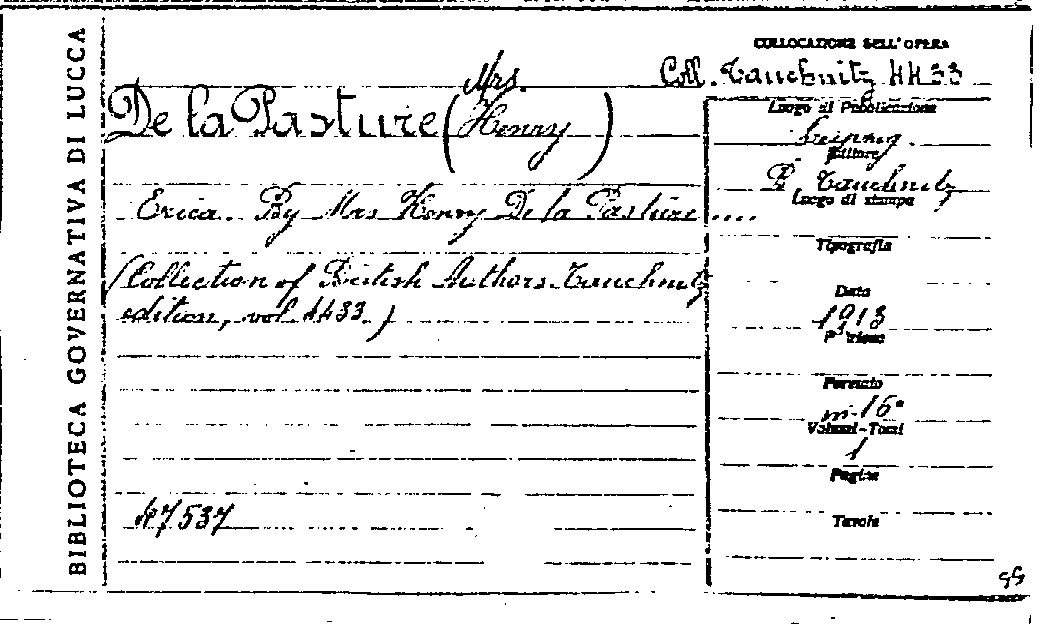 BIBLIOTECA GOVERNATIVA DI LUCCA
COLLOCAZIONE DELL'OPERA
Coll. Tauchnitz 4433
De la Pasture (Mrs. Henry)
Erica. By Mrs Henry De la Pasture....
(Collection of British Authors. Tauchnitz
edition, vol. 4433.)
47537
Luogo di Pubblicazione
Leipzig.
Editore
B. Tauchnitz
Luogo di stampa
Tipografia
Data
1913
Formato
in-16°
Volumi-Tomi
1
Pagine
Tavole